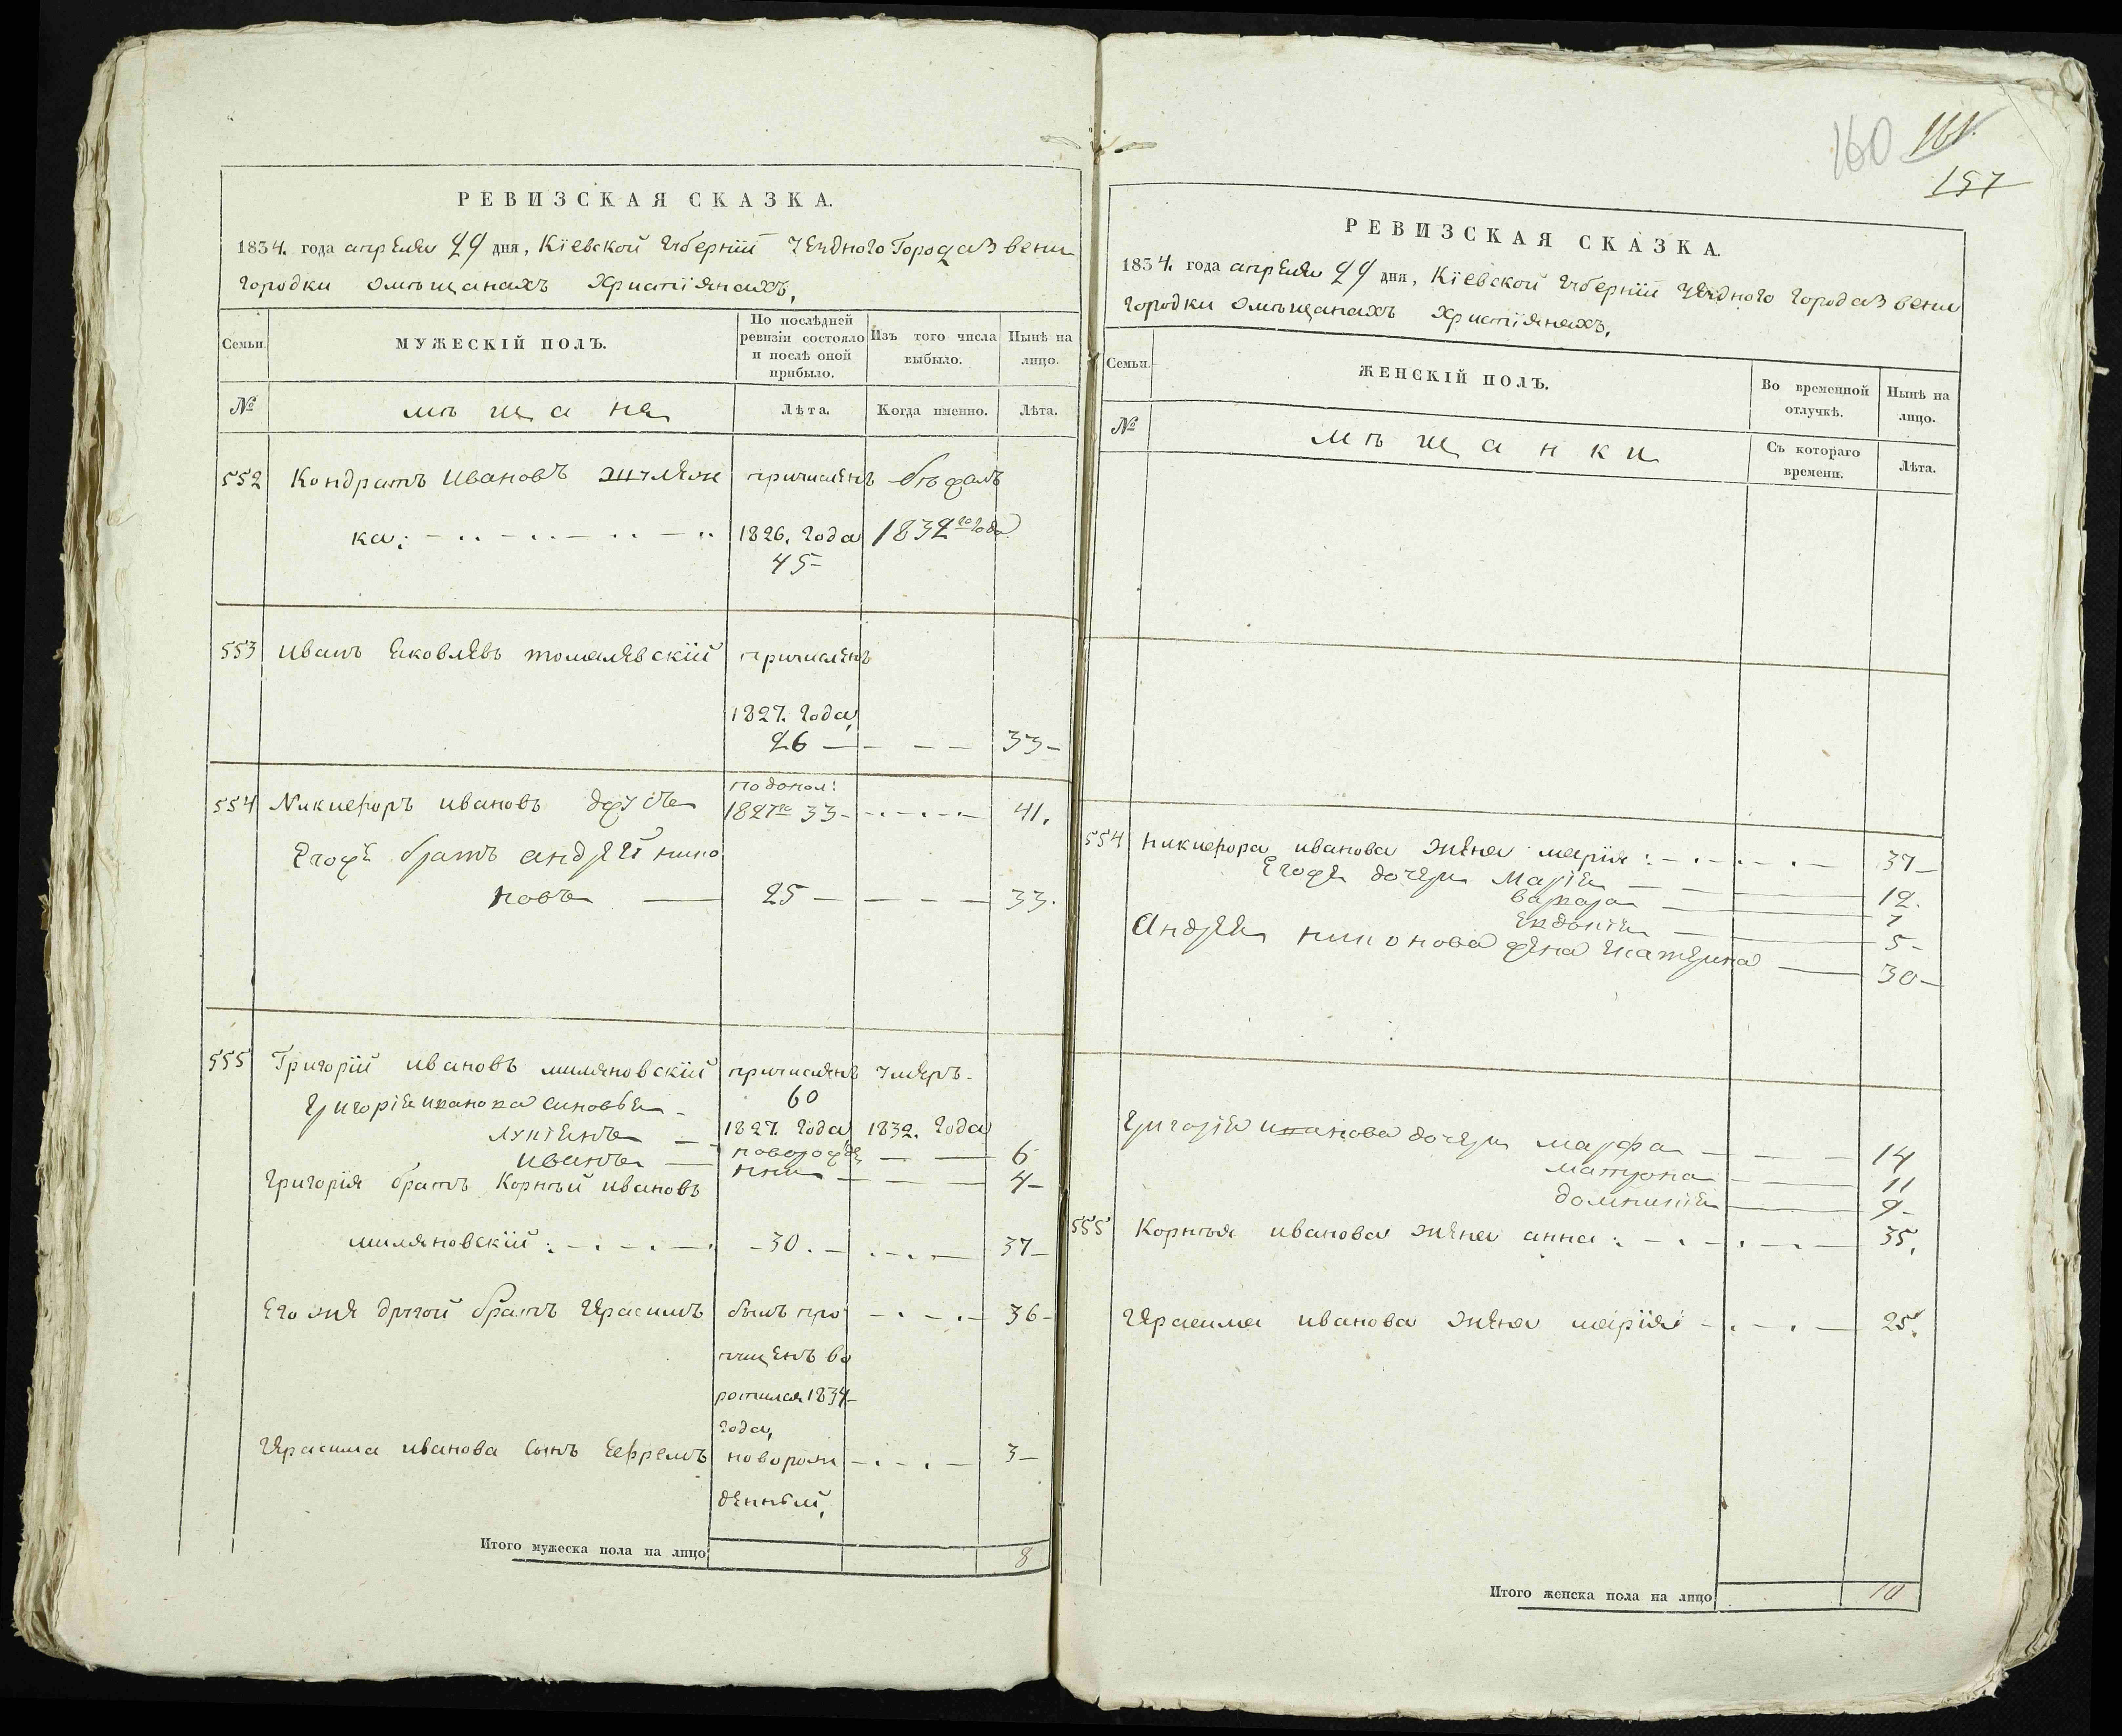 РЕВИЗСКАЯ СКАЗКА.
1834. года апреля 29 дня, Кіевской Губерніи Уезднаго Города Звени
городки омѣщанахъ Христіянахъ,
Семьи.
МУЖЕСКІЙ ПОЛЪ.
По послѣдней ревизіи состояло и послѣ оной прибыло.
Изъ того числа выбыло.
Нынѣ на лицо.
№
мѣщане
Лѣта.
Когда именно.
Лѣта.
552 Кондратъ Ивановъ причисленъ
ка: 1826. года 1832го года
45
553 Иванъ Яковлевъ томалевскій причисленъ
1827. года,
26 33
по допол:
554 Никифоръ ивановъ 1827го 33 41.
Егоже братъ андрей нико
новъ 25 33.
555 Григорій ивановъ миляновскій причисленъ умеръ
60
Григорія иванова сыновья
Лукіянъ 1827. года 1832. года
новорожде 6
иванъ нни 4
Григорія братъ Корнѣй ивановъ
миляновскій: 30. 37
Его же другой братъ Герасимъ былъ про 36
пущенъ во
ротился 1834
года,
Герасима иванова сынъ Ефремъ новорож 3
денный,
Итого мужеска пола на лицо 8
160 161
157
РЕВИЗСКАЯ СКАЗКА.
1834. года апреля 29 дня, Кіевской Губерніи Уездного города Звени
городки омѣщанахъ Христіянахъ,
Семьи.
ЖЕНСКІЙ ПОЛЪ.
Во временной отлучкѣ.
Нынѣ на лицо.
№
мѣщанки
Съ котораго времени.
Лѣта.
554 Никифора иванова жена марія: 37
Егоже дочери Марія 12.
варвара 7
Евдокія 5
Андрея никонова жена Екатерина 30
Григорія иванова дочери марфа 14
матрона 11
домникія 9
555 Корнѣя иванова жена анна: 35.
Герасима иванова жена марія 25.
Итого женска пола на лицо 10